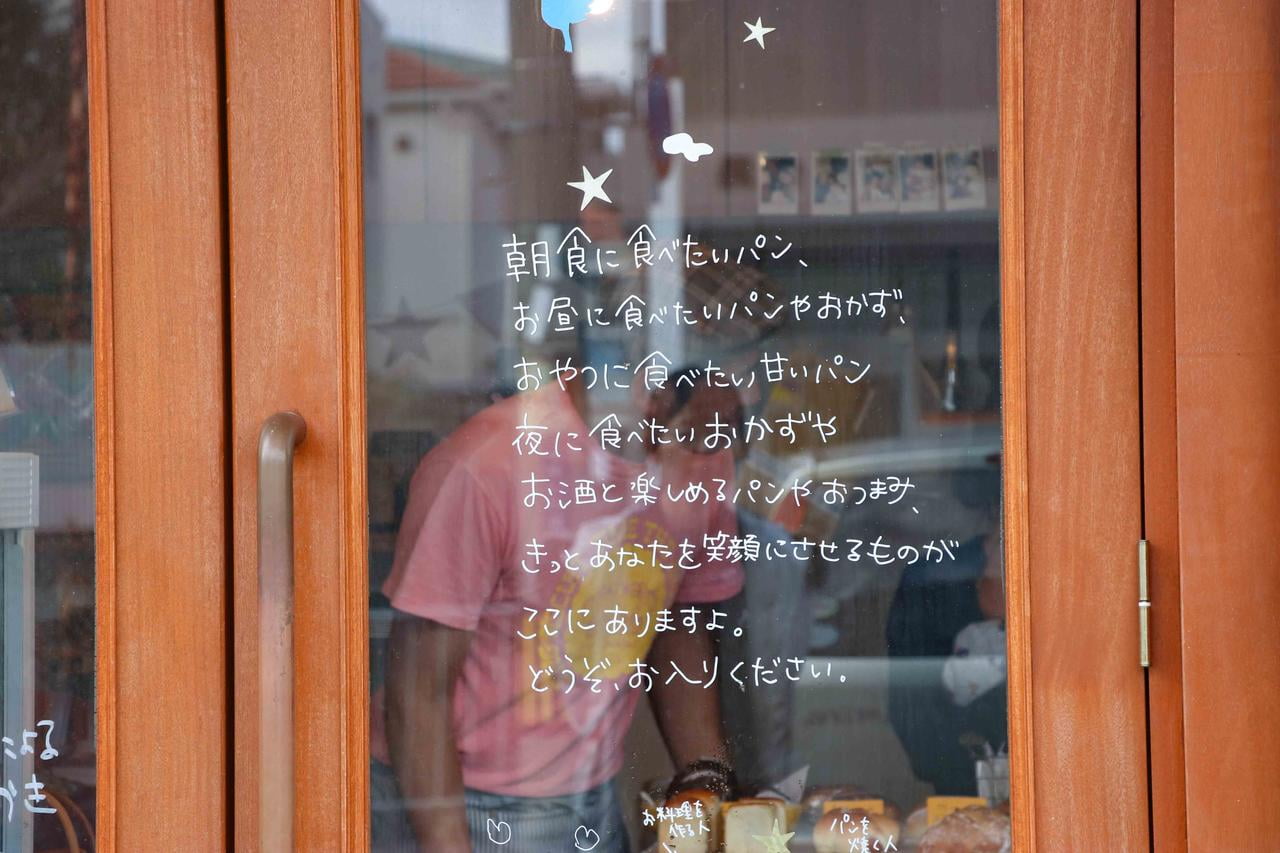 朝食に食べたいパン、
お昼に食べたいパンやおかず、
おやつに食べたい甘いパン
夜に食べたいおかずや
お酒と楽しめるパンやおつまみ、
きっとあなたを笑顔にさせるものが
ここにありますよ。
どうぞ、お入りください。
お料理を
作る人
パンを
焼く人